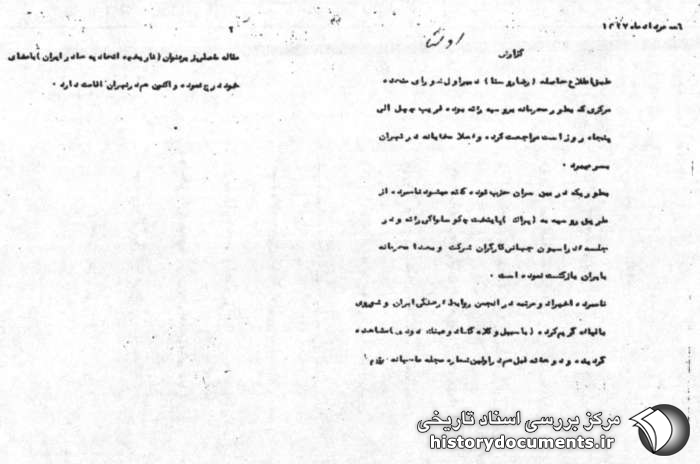 ۶ مرداد ماه ۱۳۲۷
روستا
گزارش
طبق اطلاع حاصله (رضا روستا) دبیر اول شورای متحده
مرکزی که بطور محرمانه بروسیه رفته بوده قریب چهل الی
پنجاه روز است مراجعت کرده و فعلا مخفیانه در تهران
بسر میبرد .
بطوریکه در بین سران حزب توده گفته میشود نامبرده از
طریق روسیه به پایتخت چکوسلواکی رفته و در
جلسه فدراسیون جهانی کارگران شرکت و بعدا محرمانه
بایران بازگشت نموده است .
نامبرده اخیرا دو مرتبه در انجمن روابط فرهنگی ایران و شوروی
با قیافه گریم کرده (با سبیل و کلاه گشاد و عینک دودی) مشاهده
گردیده و دو هفته قبل هم در اولین شماره مجله ماهیانه رزم
۲
مقاله مفصلی بعنوان (تاریخچه اتحادیه ها در ایران) بامضای
خود درج نموده و اکنون هم در تهران اقامت دارد .
مرکز بررسی اسناد تاریخی
historydocuments.ir